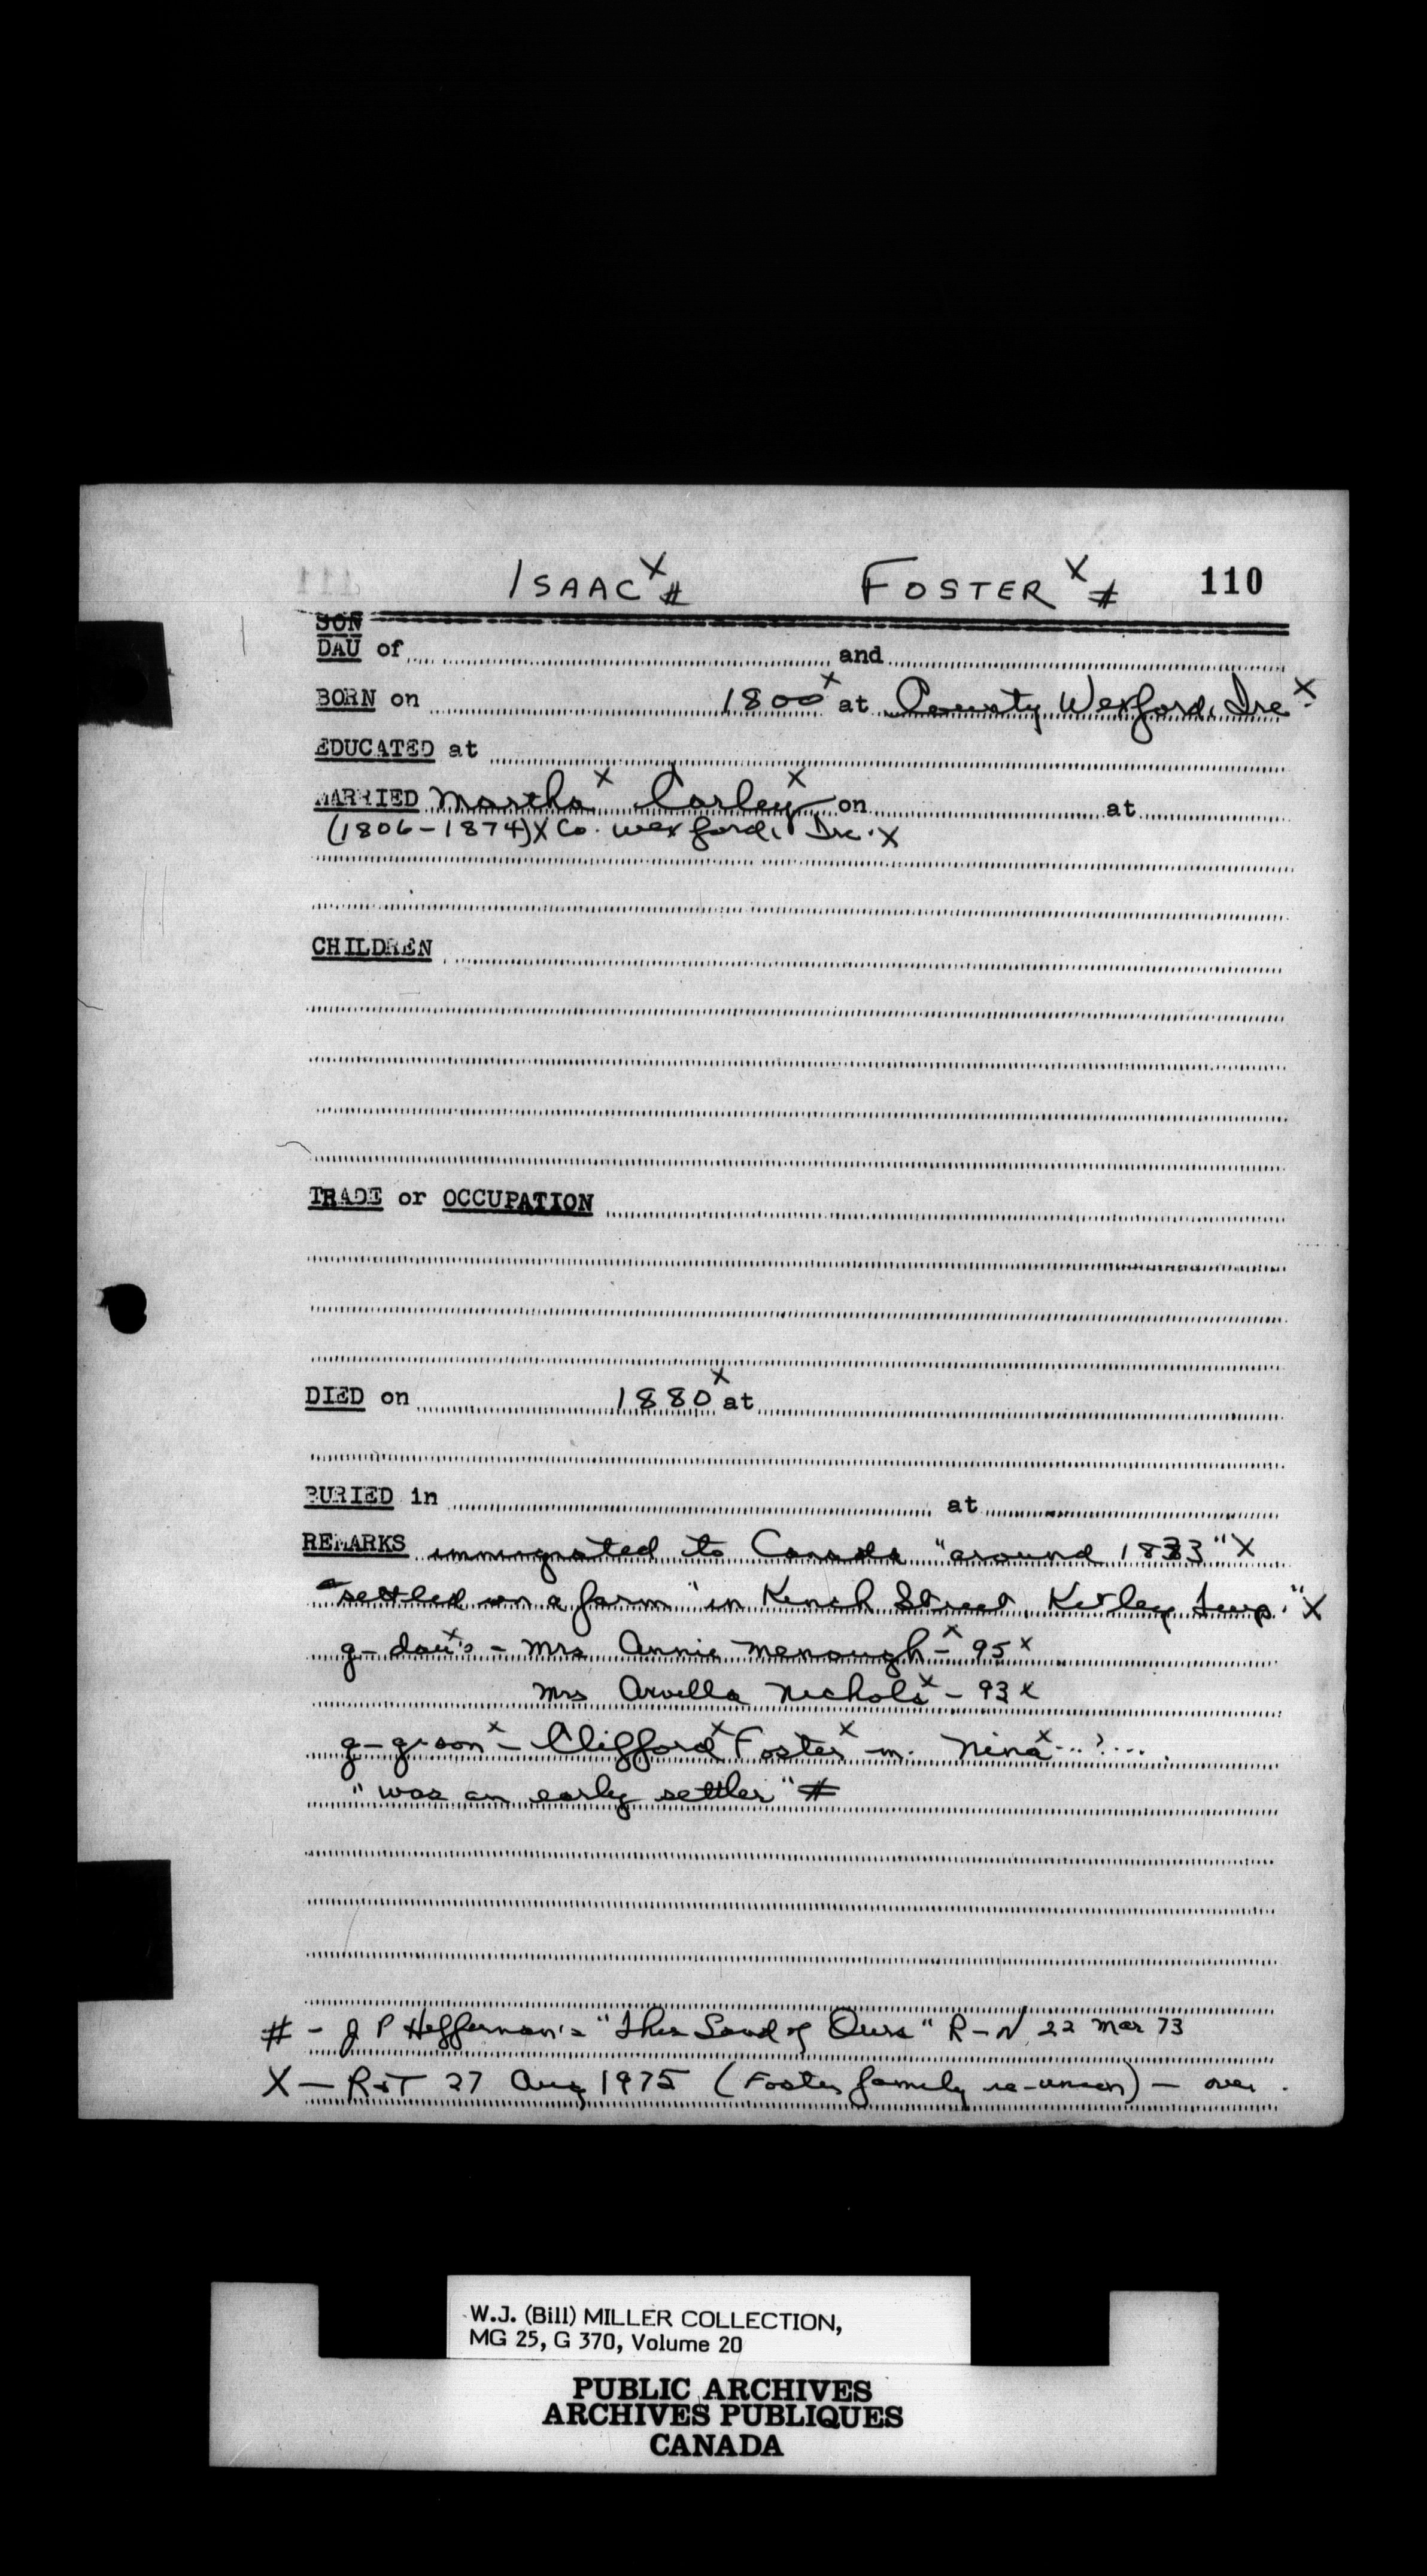 ISAAC X # FOSTER X # 110
SON
DAU of and
BORN on 1800 X at County Wexford, Ire X
EDUCATED at
MARRIED Martha X Corley X on at
(1806-1874) X Co. Wexford, Ire. X
CHILDREN
TRADE or OCCUPATION
DIED on 1880 X at
BURIED in at
REMARKS immigrated to Canada "around 1833" X
settled on a farm "in Kinch Street, Kitley Twp." X
g-dau's X - Mrs Annie Menough X - 95 X
Mrs Arvella Nichols X - 93 X
g-g-son X - Clifford X Foster X m. Nina X ...?....
"was an early settler" #
# - J P Heffernan's "This Land of Ours" R-N 22 Mar 73
X - R&T 27 Aug 1975 (Foster family re-union) - over.
W.J. (Bill) MILLER COLLECTION,
MG 25, G 370, Volume 20
PUBLIC ARCHIVES
ARCHIVES PUBLIQUES
CANADA